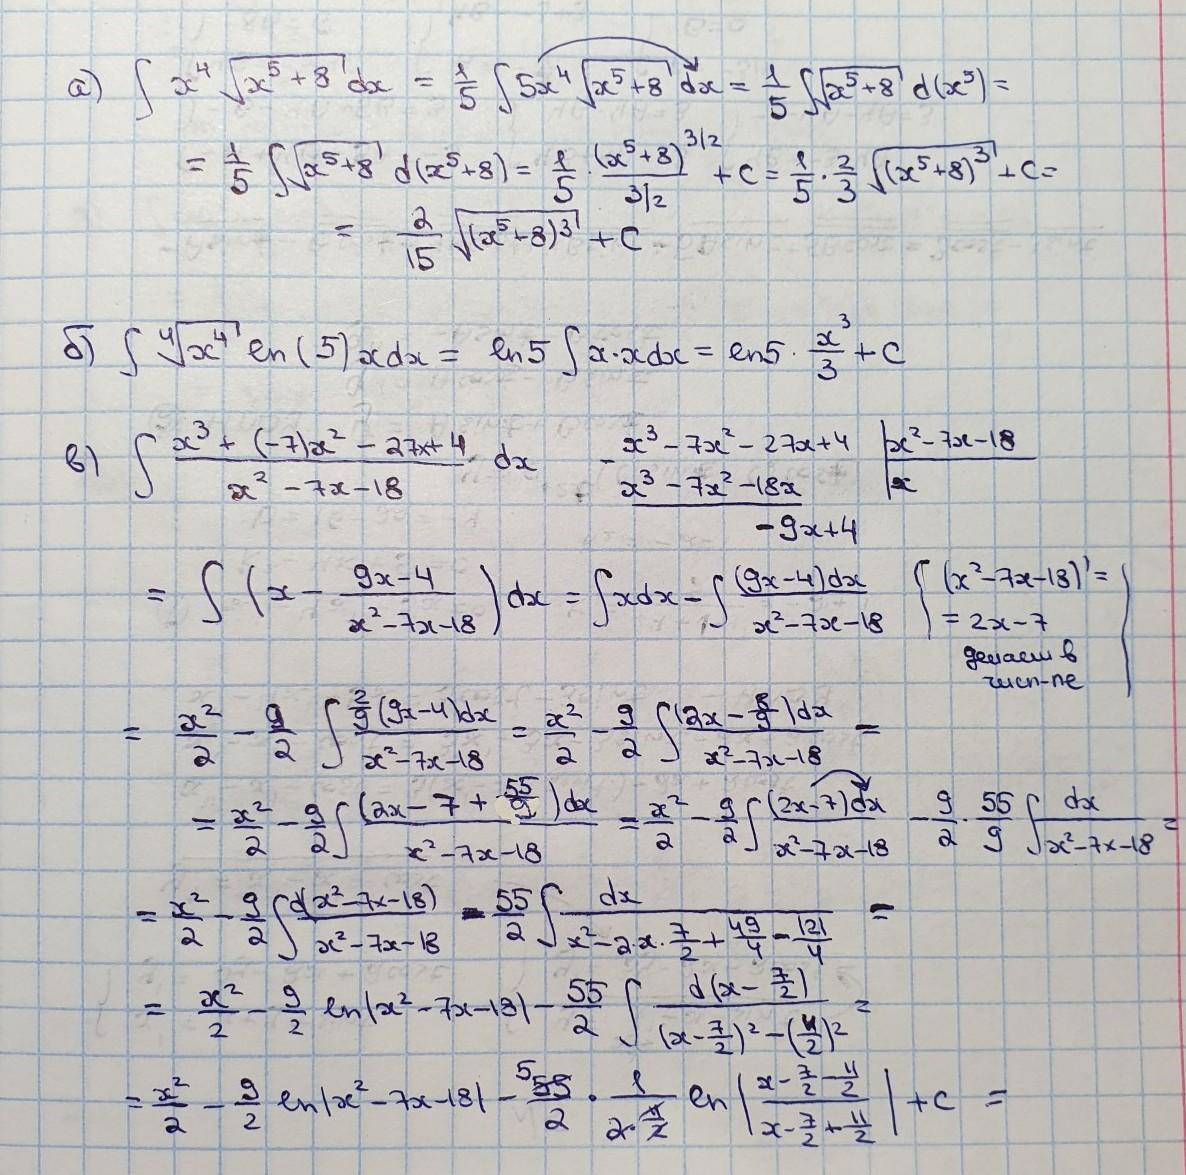 а) ∫ x⁴ √(x⁵+8) dx = 1/5 ∫ 5x⁴ √(x⁵+8) dx = 1/5 ∫ √(x⁵+8) d(x⁵) =
= 1/5 ∫ √(x⁵+8) d(x⁵+8) = 1/5 · (x⁵+8)^(3/2) / (3/2) + C = 1/5 · 2/3 √((x⁵+8)³) + C =
= 2/15 √((x⁵+8)³) + C
б) ∫ ⁴√(x⁴) ln(5) x dx = ln5 ∫ x·x dx = ln5 · x³/3 + C
в) ∫ (x³ + (-7)x² - 27x + 4)/(x² - 7x - 18) dx - x³ - 7x² - 27x + 4 | x² - 7x - 18
x³ - 7x² - 18x | x
- 9x + 4
= ∫ (x - (9x-4)/(x²-7x-18)) dx = ∫ x dx - ∫ (9x-4)dx/(x²-7x-18) { (x²-7x-18)' =
= 2x - 7
делаем в
числ-ле }
= x²/2 - 9/2 ∫ 2/9 (9x-4)dx/(x²-7x-18) = x²/2 - 9/2 ∫ (2x - 8/9)dx/(x²-7x-18) =
= x²/2 - 9/2 ∫ (2x - 7 + 55/9)dx/(x²-7x-18) = x²/2 - 9/2 ∫ (2x-7)dx/(x²-7x-18) - 9/2 · 55/9 ∫ dx/(x²-7x-18) =
= x²/2 - 9/2 ∫ d(x²-7x-18)/(x²-7x-18) - 55/2 ∫ dx/(x² - 2·x·7/2 + 49/4 - 121/4) =
= x²/2 - 9/2 ln|x²-7x-18| - 55/2 ∫ d(x - 7/2)/((x - 7/2)² - (11/2)²) =
= x²/2 - 9/2 ln|x²-7x-18| - 5 55/2 · 1/(2·11/2) ln|(x - 7/2 - 11/2)/(x - 7/2 + 11/2)| + C =